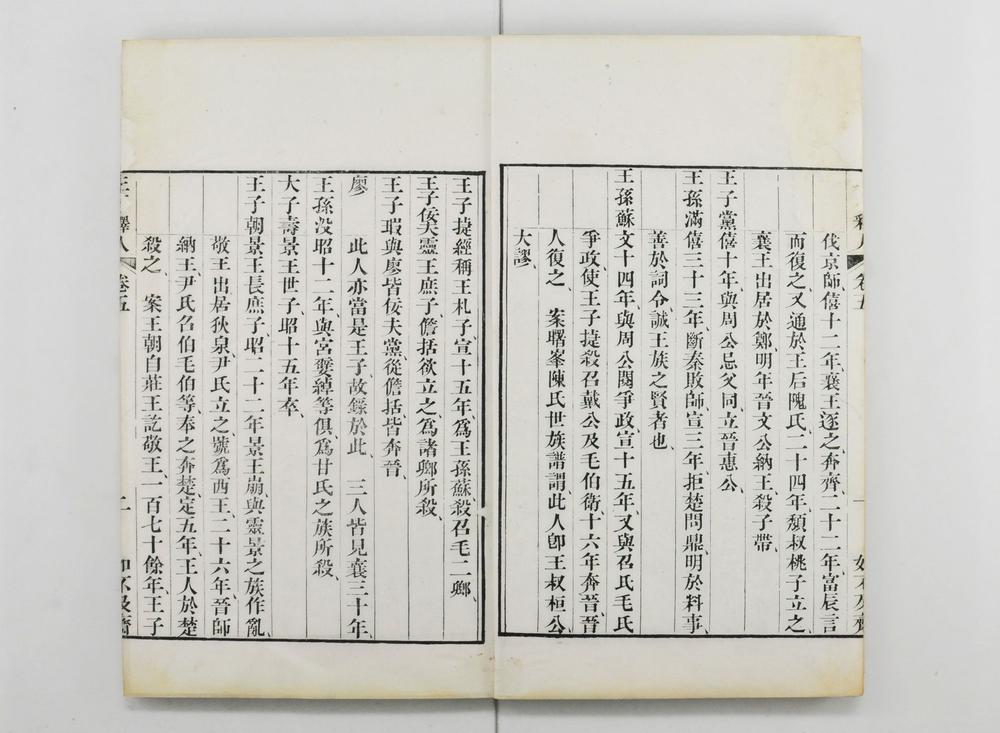 伐京師、僖十二年、襄王逐之、奔齊、二十二年、富辰言
而復之、又通於王后隗氏、二十四年、頹叔桃子立之、
襄王出居於鄭、明年晉文公納王、殺子帶、
王子黨僖十年、與周公忌父同立晉惠公、
王孫滿僖三十三年、斷秦敗師、宣三年、拒楚問鼎、明於料事、
善於詞令、誠王族之賢者也、
王孫蘇文十四年、與周公閱爭政、宣十五年、又與召氏毛氏
爭政、使王子捷殺召戴公及毛伯衛、十六年、奔晉、晉
人復之、　案曙峯陳氏世族譜謂此人卽王叔桓公、
大謬、
王子捷經稱王札子、宣十五年、爲王孫蘇殺召毛二卿、
王子佞夫靈王庶子、儋括欲立之、爲諸卿所殺、
王子瑕與廖皆佞夫黨、從儋括皆奔晉、
廖　此人亦當是王子、故錄於此、　三人皆見襄三十年、
王孫沒昭十二年、與宮嬖綽等俱爲甘氏之族所殺、
大子壽景王世子、昭十五年卒、
王子朝景王長庶子、昭二十二年、景王崩、與靈景之族作亂、
敬王出居狄泉、尹氏立之、號爲西王、二十六年、晉師
納王、尹氏名伯毛伯等奉之奔楚、定五年、王人於楚
殺之、　案王朝自莊王訖敬王、一百七十餘年、王子
釋人　卷五　二　如不及齋